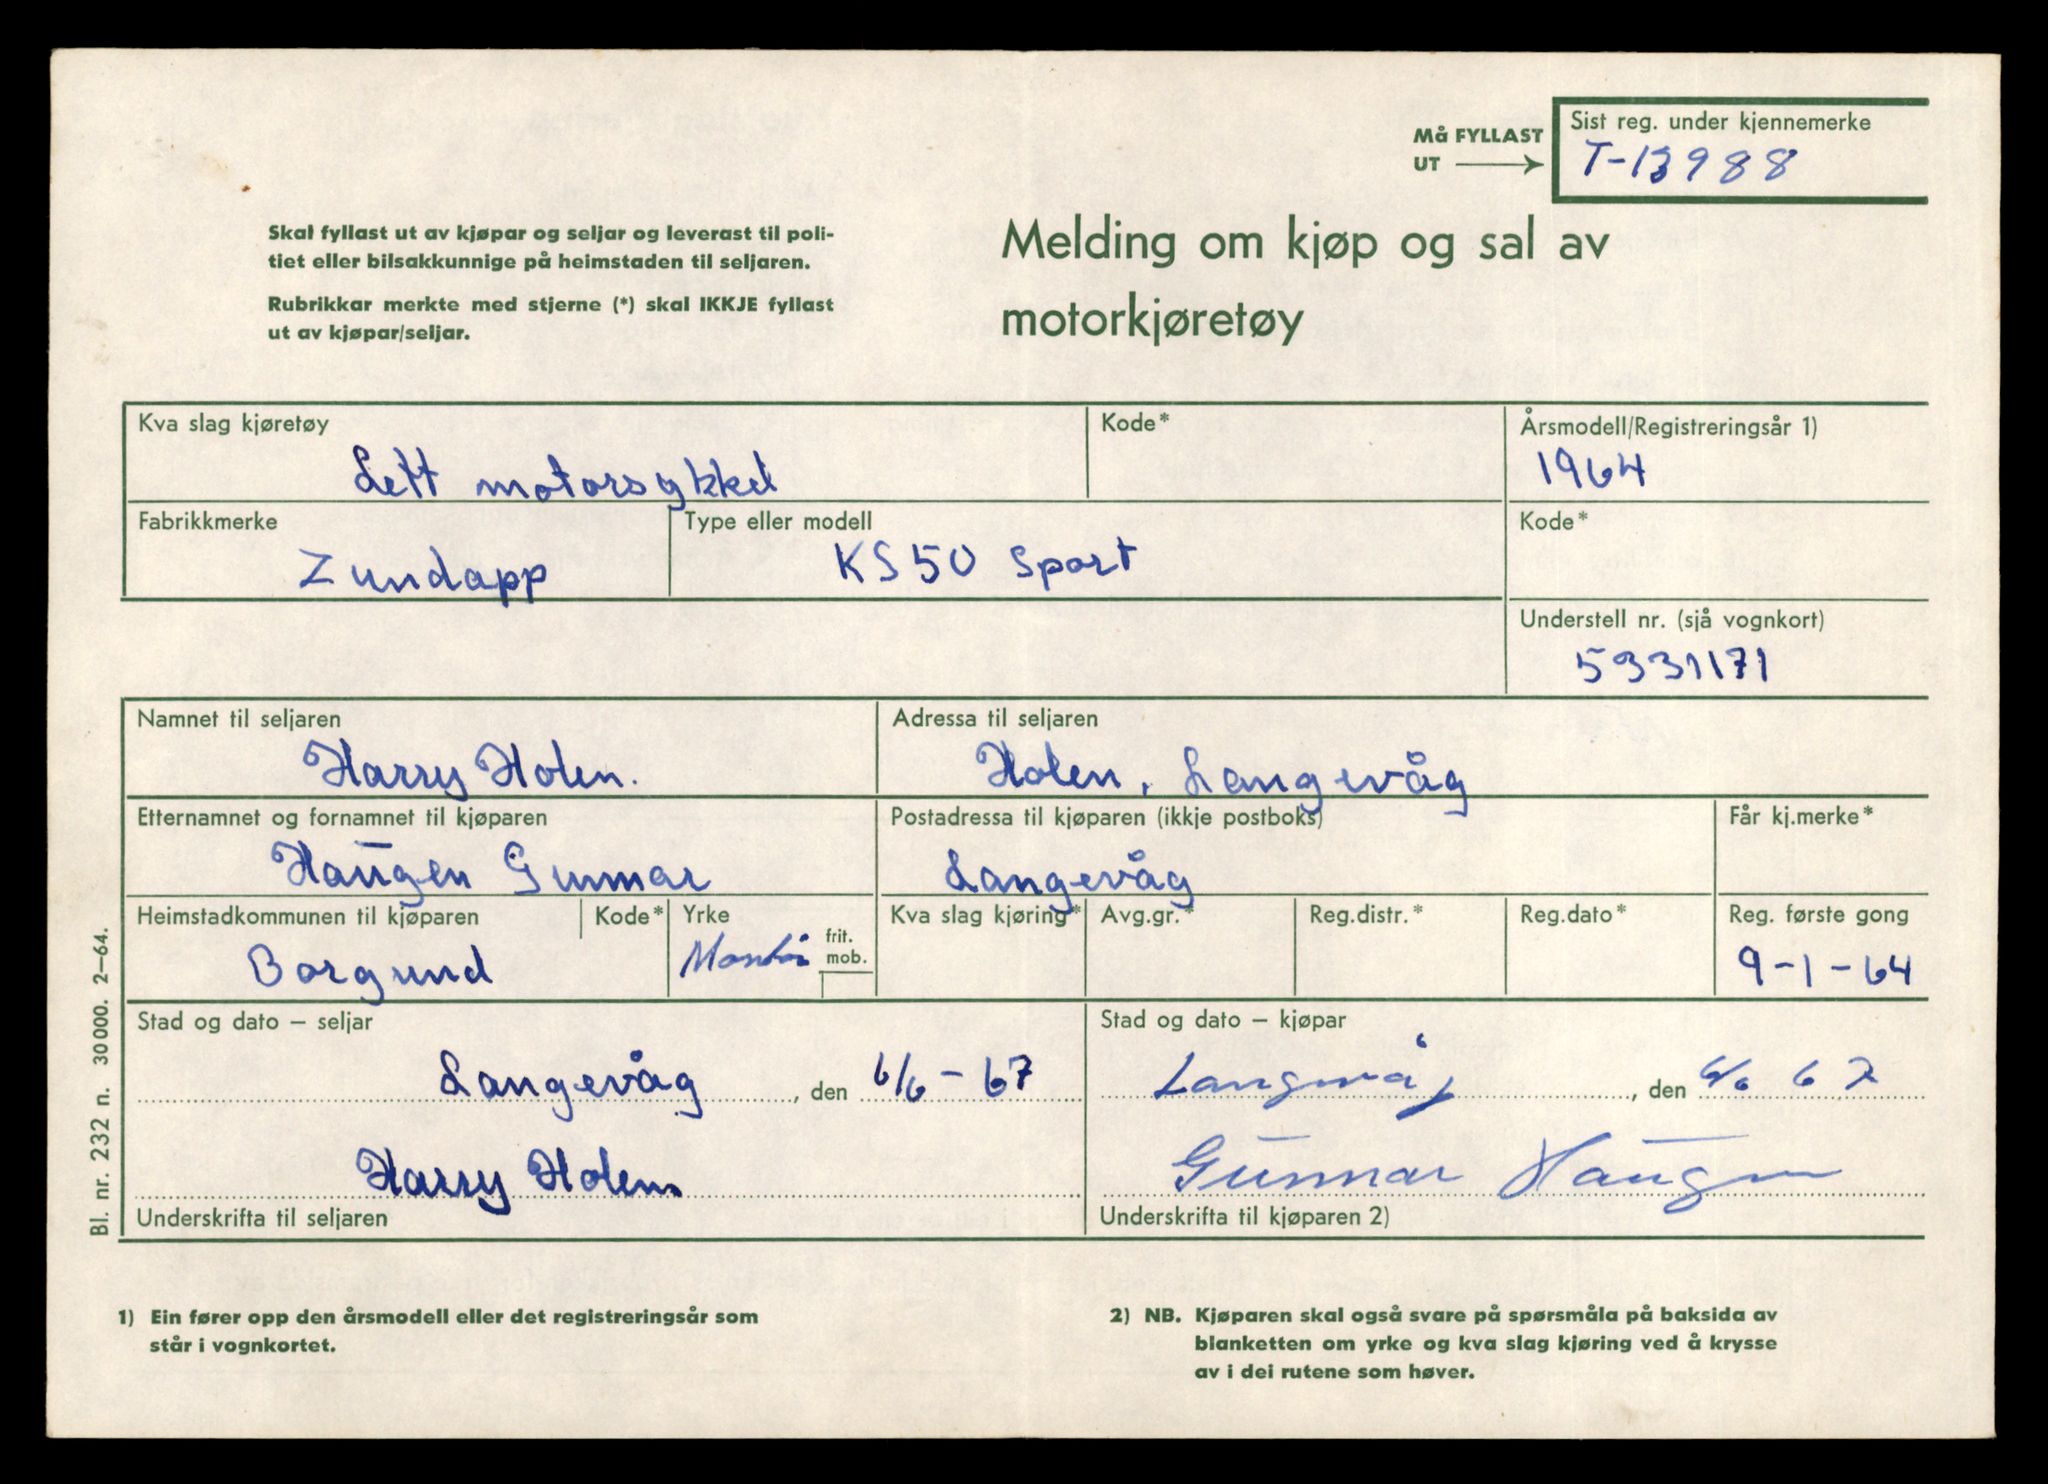 Må FYLLAST
UT
Sist reg. under kjennemerke
T-13988
Skal fyllast ut av kjøpar og seljar og leverast til poli-
tiet eller bilsakkunnige på heimstaden til seljaren.
Rubrikkar merkte med stjerne (*) skal IKKJE fyllast
ut av kjøpar/seljar.
Melding om kjøp og sal av
motorkjøretøy
Kva slag kjøretøy
Lett motorsykkel
Kode*
Årsmodell/Registreringsår 1)
1964
Fabrikkmerke
Zundapp
Type eller modell
KS50 Sport
Kode*
Understell nr. (sjå vognkort)
5331171
Namnet til seljaren
Harry Holen.
Adressa til seljaren
Holen, Langevåg
Etternamnet og fornamnet til kjøparen
Haugen Gunnar
Postadressa til kjøparen (ikkje postboks)
Langevåg
Får kj.merke*
Heimstadkommunen til kjøparen
Borgund
Kode*
Yrke
Montør
frit.
mob.
Kva slag kjøring*
Avg.gr.*
Reg.distr.*
Reg.dato*
Reg. første gong
9-1-64
Stad og dato – seljar
Langevåg, den 6/6-67
Harry Holen
Underskrifta til seljaren
Stad og dato – kjøpar
Langevåg, den 6/6 67
Gunnar Haugen
Underskrifta til kjøparen 2)
Bl. nr. 232 n. 30000. 2–64.
1) Ein fører opp den årsmodell eller det registreringsår som
står i vognkortet.
2) NB. Kjøparen skal også svare på spørsmåla på baksida av
blanketten om yrke og kva slag kjøring ved å krysse
av i dei rutene som høver.